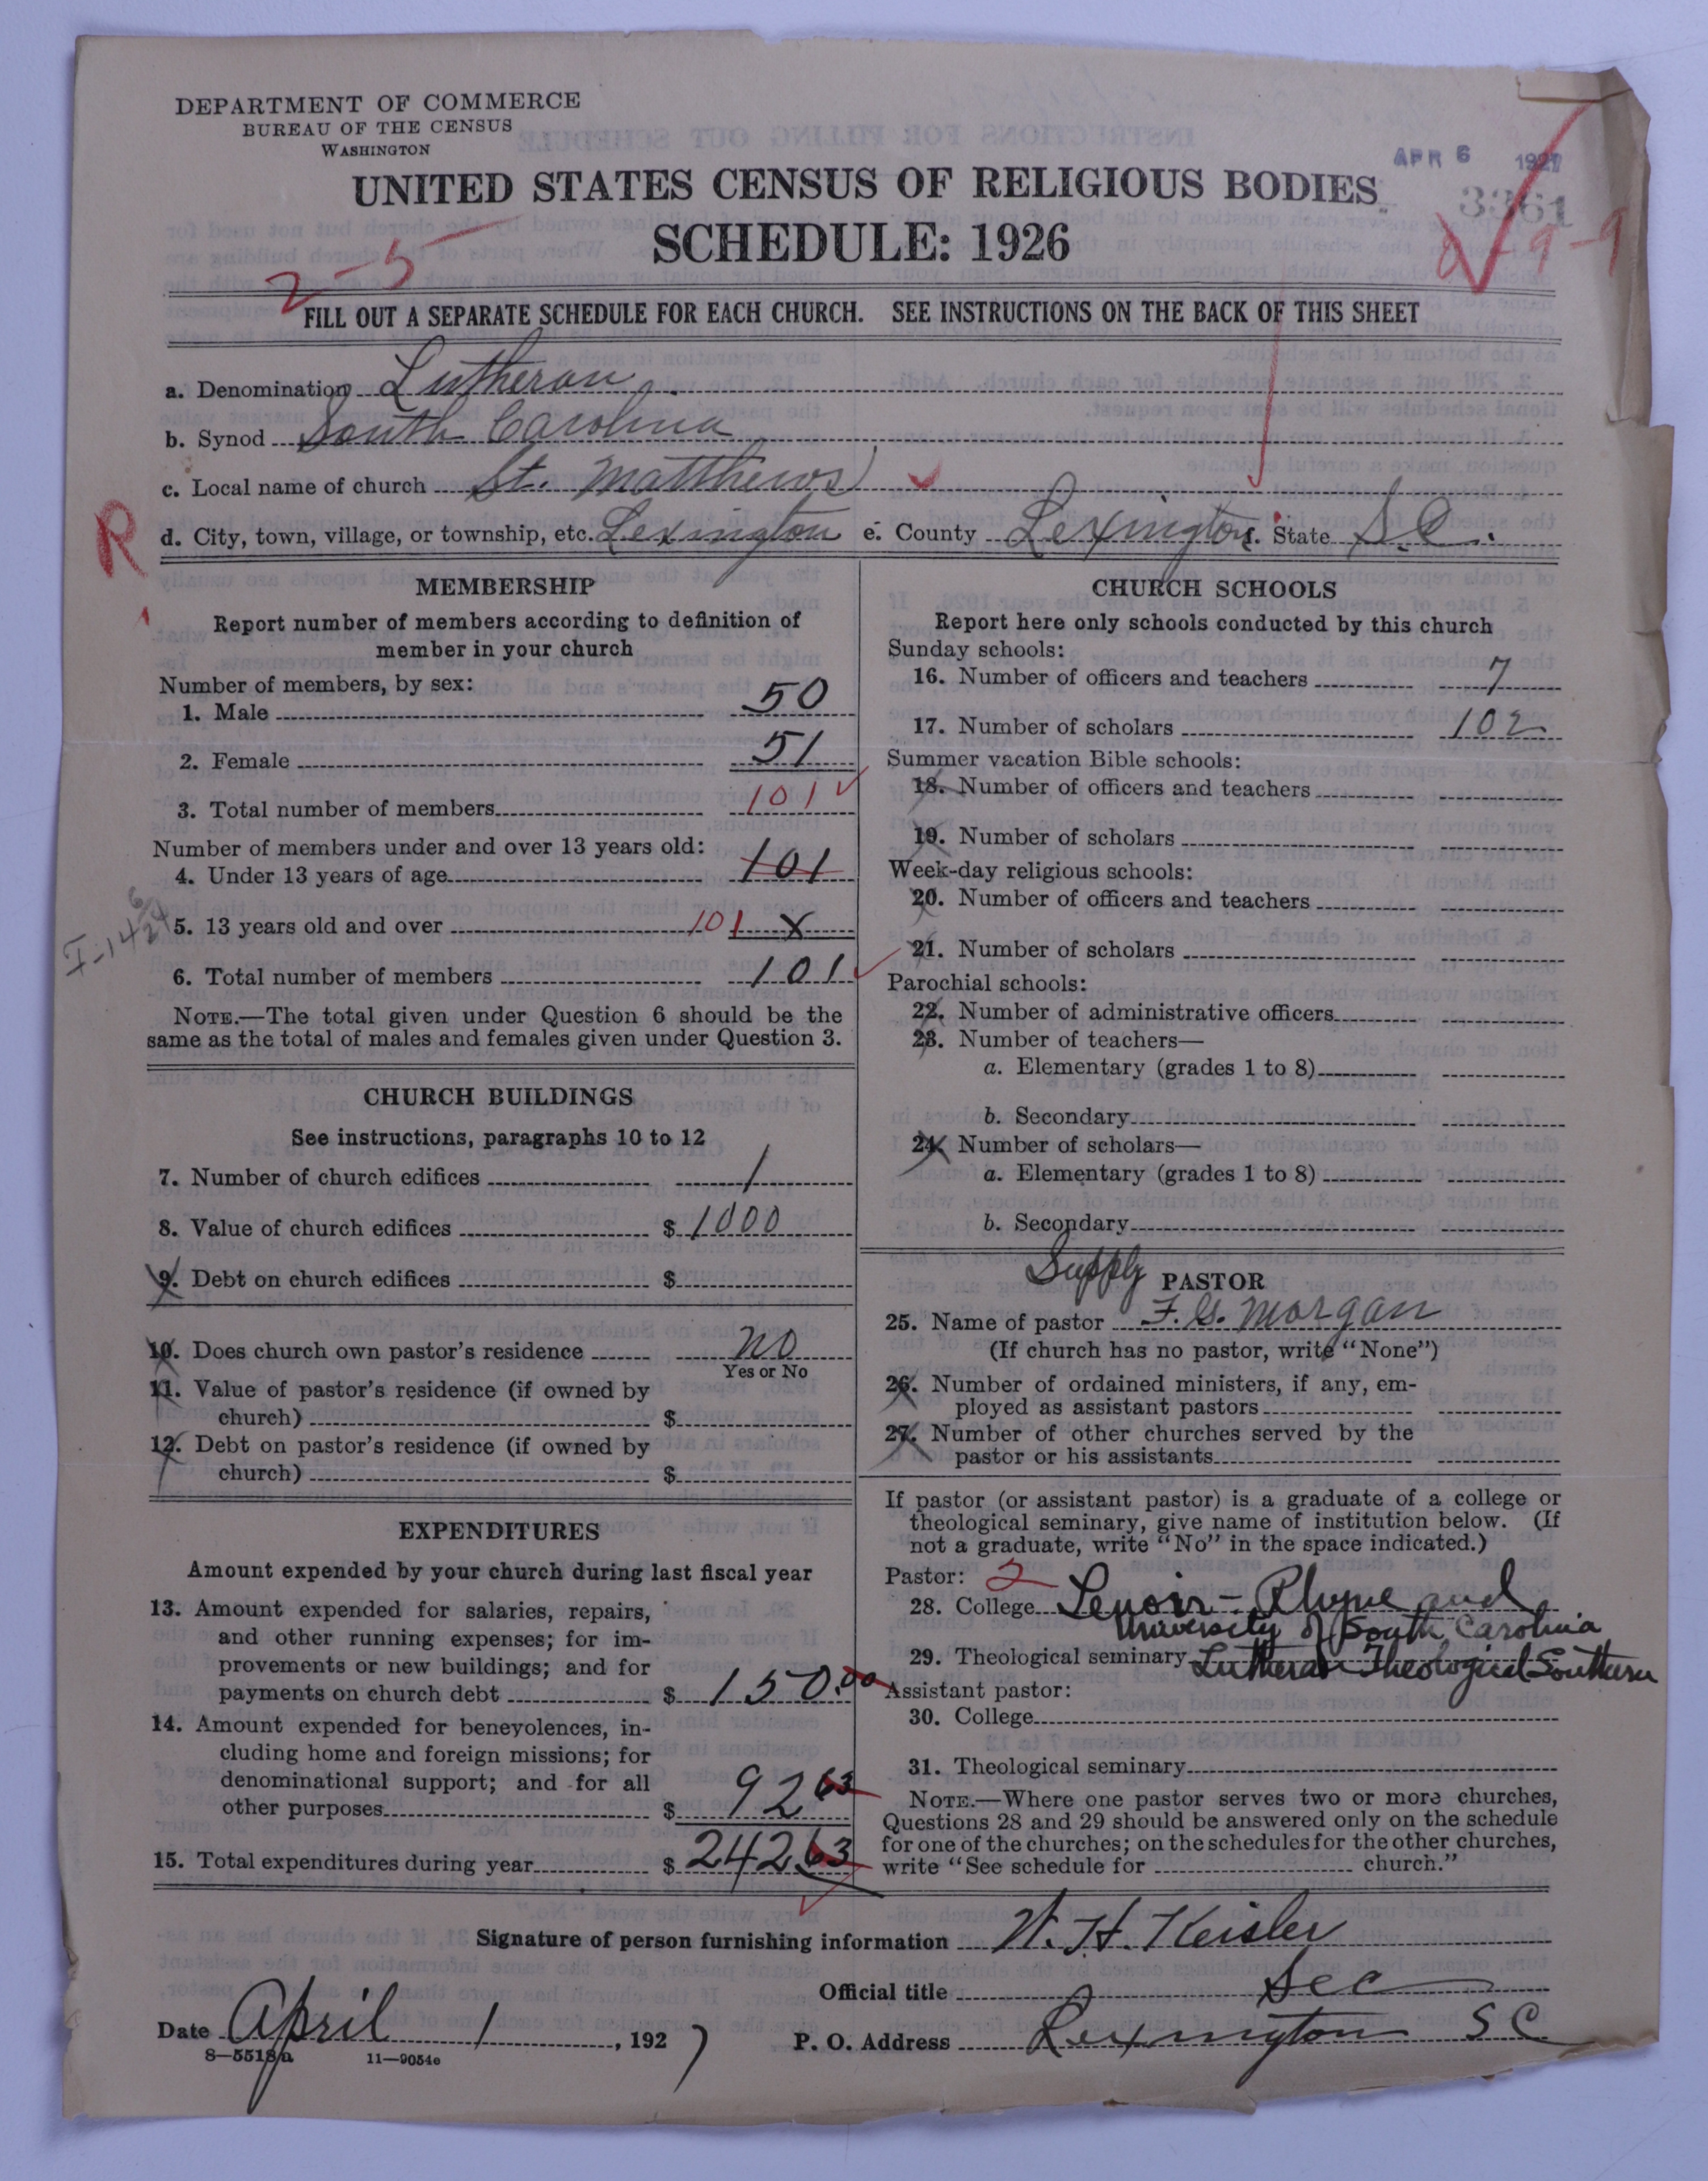 DEPARTMENT OF COMMERCE
BUREAU OF THE CENSUS
WASHINGTON
APR 6 1927
UNITED STATES CENSUS OF RELIGIOUS BODIES
3361
SCHEDULE: 1926
2-5
9-9
FILL OUT A SEPARATE SCHEDULE FOR EACH CHURCH. SEE INSTRUCTIONS ON THE BACK OF THIS SHEET
a. Denomination Lutheran
b. Synod South Carolina
c. Local name of church St. Matthews
R
d. City, town, village, or township, etc. Lexington e. County Lexington f. State S.C.
MEMBERSHIP
Report number of members according to definition of
member in your church
Number of members, by sex:
1. Male 50
2. Female 51
3. Total number of members 101
Number of members under and over 13 years old:
4. Under 13 years of age 101
5. 13 years old and over 101 x
6. Total number of members 101
NOTE.—The total given under Question 6 should be the
same as the total of males and females given under Question 3.
CHURCH BUILDINGS
See instructions, paragraphs 10 to 12
7. Number of church edifices 1
8. Value of church edifices $ 1000
9. Debt on church edifices $
10. Does church own pastor's residence no
Yes or No
11. Value of pastor's residence (if owned by
church) $
12. Debt on pastor's residence (if owned by
church) $
EXPENDITURES
Amount expended by your church during last fiscal year
13. Amount expended for salaries, repairs,
and other running expenses; for im-
provements or new buildings; and for
payments on church debt $ 150.00
14. Amount expended for benevolences, in-
cluding home and foreign missions; for
denominational support; and for all
other purposes $ 92 63
15. Total expenditures during year $ 242 63
CHURCH SCHOOLS
Report here only schools conducted by this church
Sunday schools:
16. Number of officers and teachers 7
17. Number of scholars 102
Summer vacation Bible schools:
18. Number of officers and teachers
19. Number of scholars
Week-day religious schools:
20. Number of officers and teachers
21. Number of scholars
Parochial schools:
22. Number of administrative officers
23. Number of teachers—
a. Elementary (grades 1 to 8)
b. Secondary
24. Number of scholars—
a. Elementary (grades 1 to 8)
b. Secondary
Supply PASTOR
25. Name of pastor F. G. Morgan
(If church has no pastor, write "None")
26. Number of ordained ministers, if any, em-
ployed as assistant pastors
27. Number of other churches served by the
pastor or his assistants
If pastor (or assistant pastor) is a graduate of a college or
theological seminary, give name of institution below. (If
not a graduate, write "No" in the space indicated.)
Pastor: 2
28. College Lenoir-Rhyne and
University of South Carolina
29. Theological seminary Lutheran Theological Southern
Assistant pastor:
30. College
31. Theological seminary
NOTE.—Where one pastor serves two or more churches,
Questions 28 and 29 should be answered only on the schedule
for one of the churches; on the schedules for the other churches,
write "See schedule for church."
Signature of person furnishing information W. H. Keisler
Official title Sec
Date April 1, 1927 P. O. Address Lexington S C
8—5518a 11—9054e